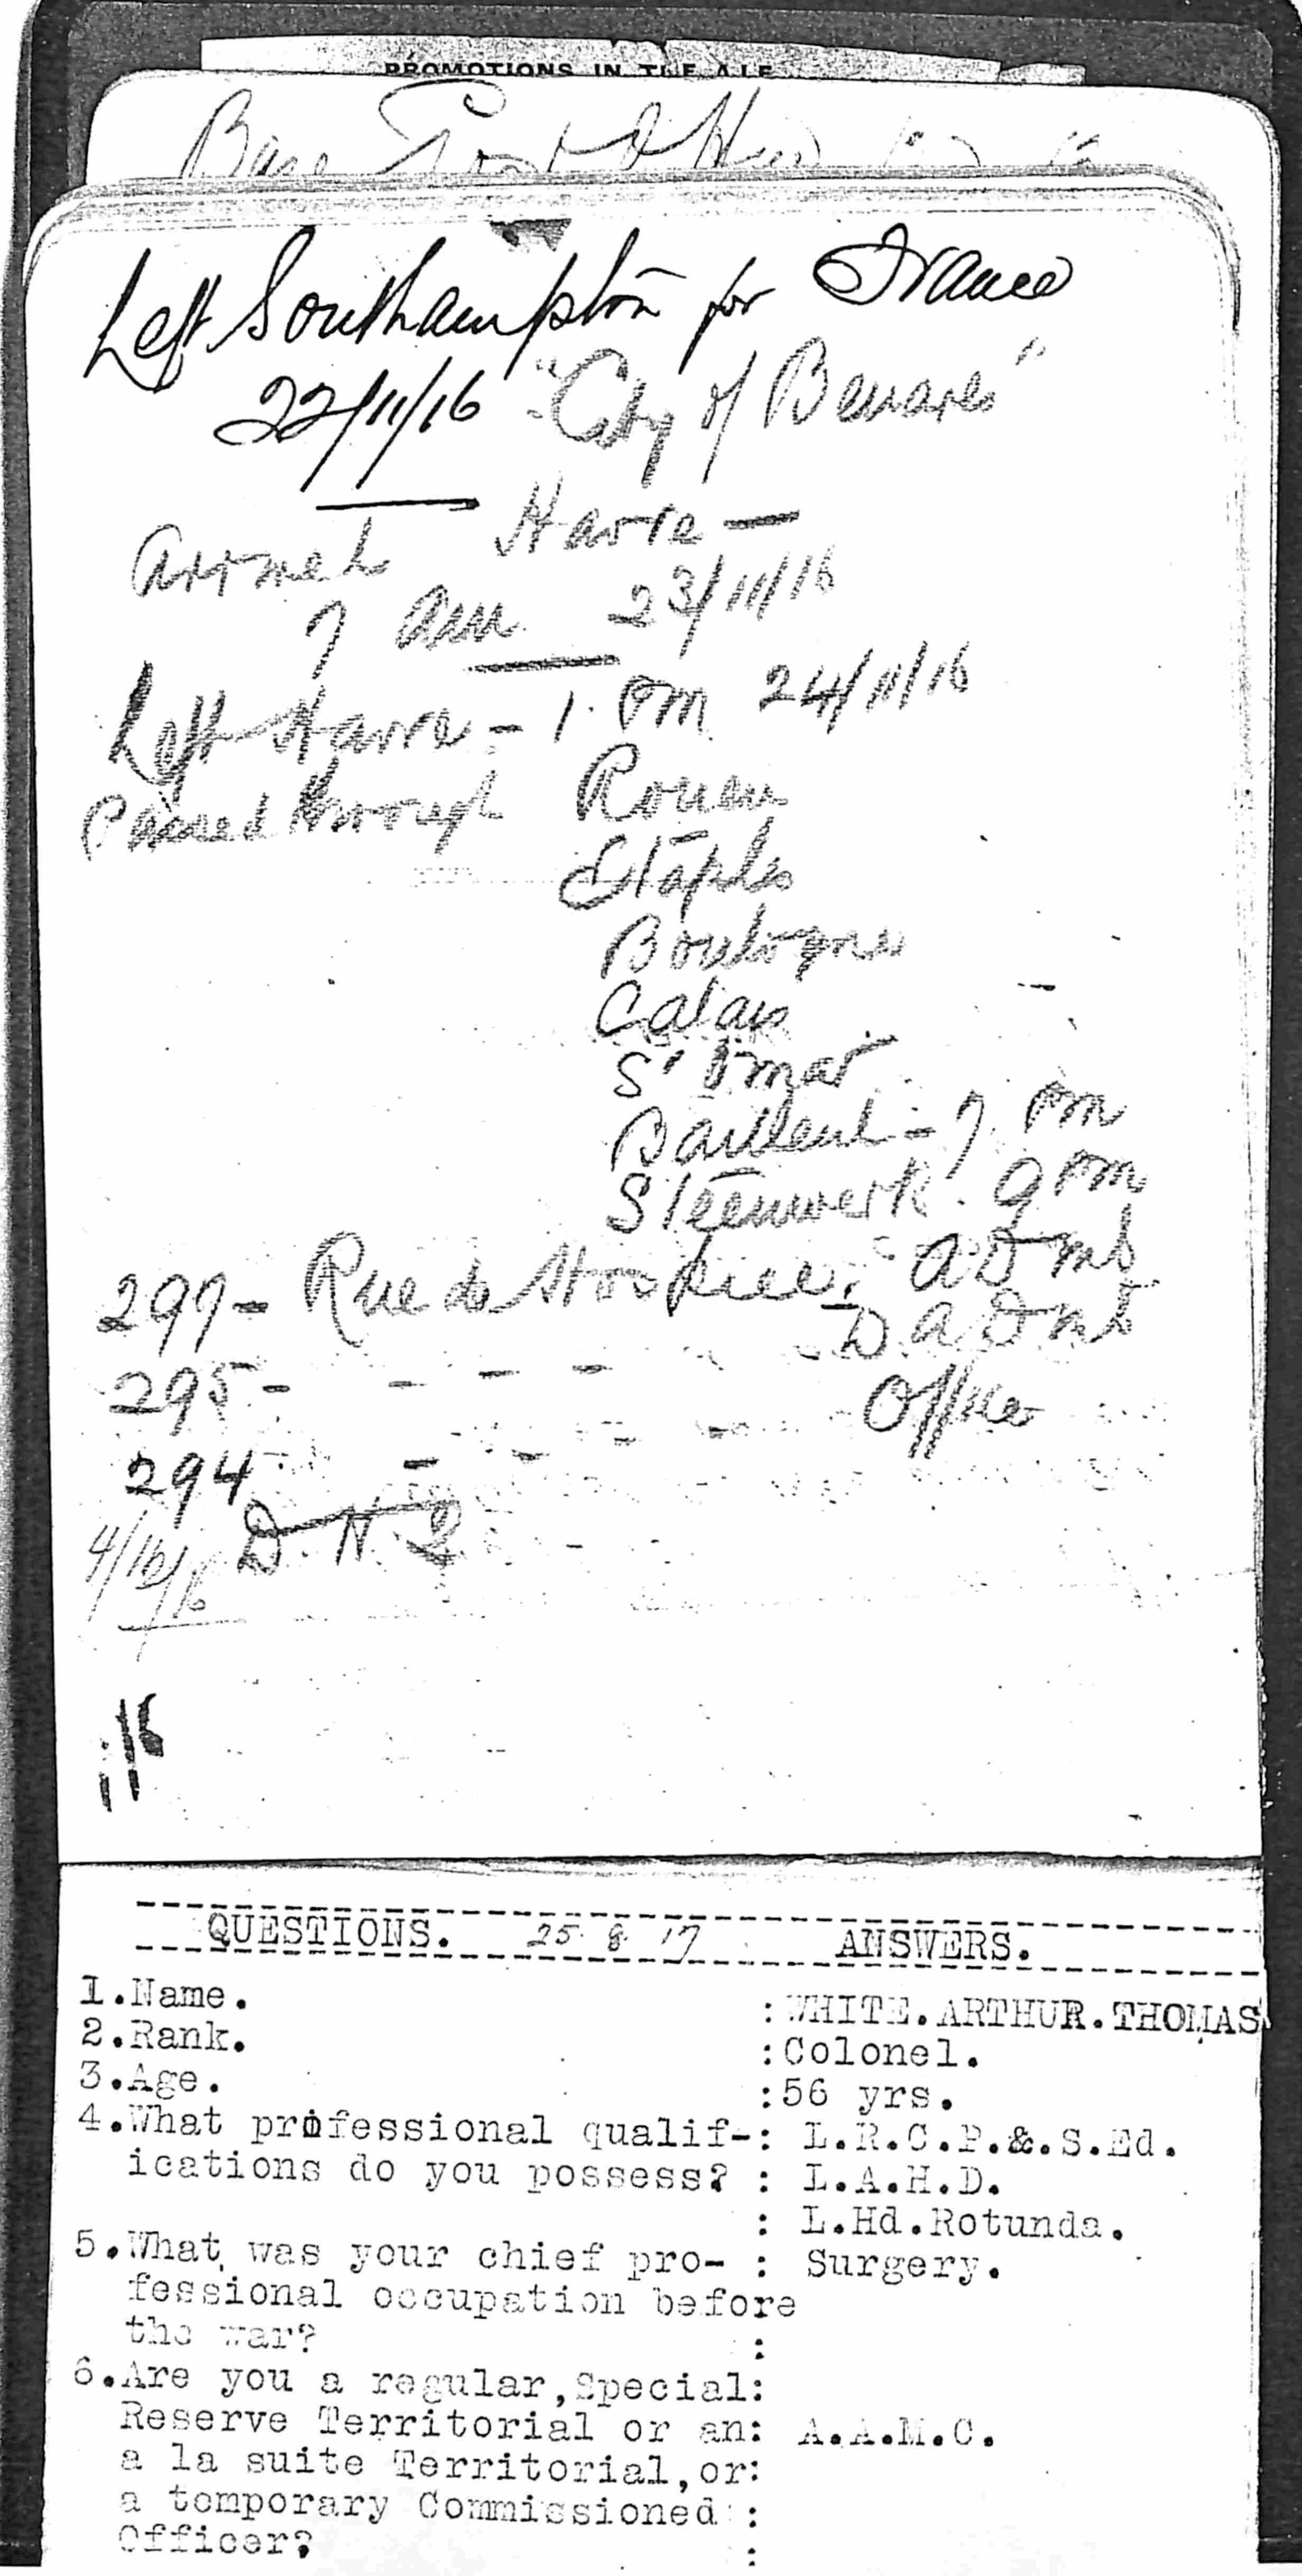 PROMOTIONS IN THE A.I.F.
Base
Left Southampton for France
22/11/16 "City of Benares"
Arrived Havre —
7 am 23/11/16
Left Havre - 1. pm 24/11/16
Passed through Rouen
Etaples
Boulogne
Calais
St Omar
Bailleul - 7. pm
Steenwerk. 9 pm
297 - Rue de Hospice, ADMS
D.ADMS
295 - - - -
Office
294 - - - -
D.N.S.
QUESTIONS. 25.8.17 ANSWERS.
1.Name. :WHITE.ARTHUR.THOMAS
2.Rank. :Colonel.
3.Age. :56 yrs.
4.What professional qualif-: L.R.C.P.&.S.Ed.
ications do you possess? : L.A.H.D.
: L.Hd.Rotunda.
5.What was your chief pro- : Surgery.
fessional occupation before
the war? :
6.Are you a regular,Special:
Reserve Territorial or an: A.A.M.C.
a la suite Territorial,or:
a temporary Commissioned :
Officer? :